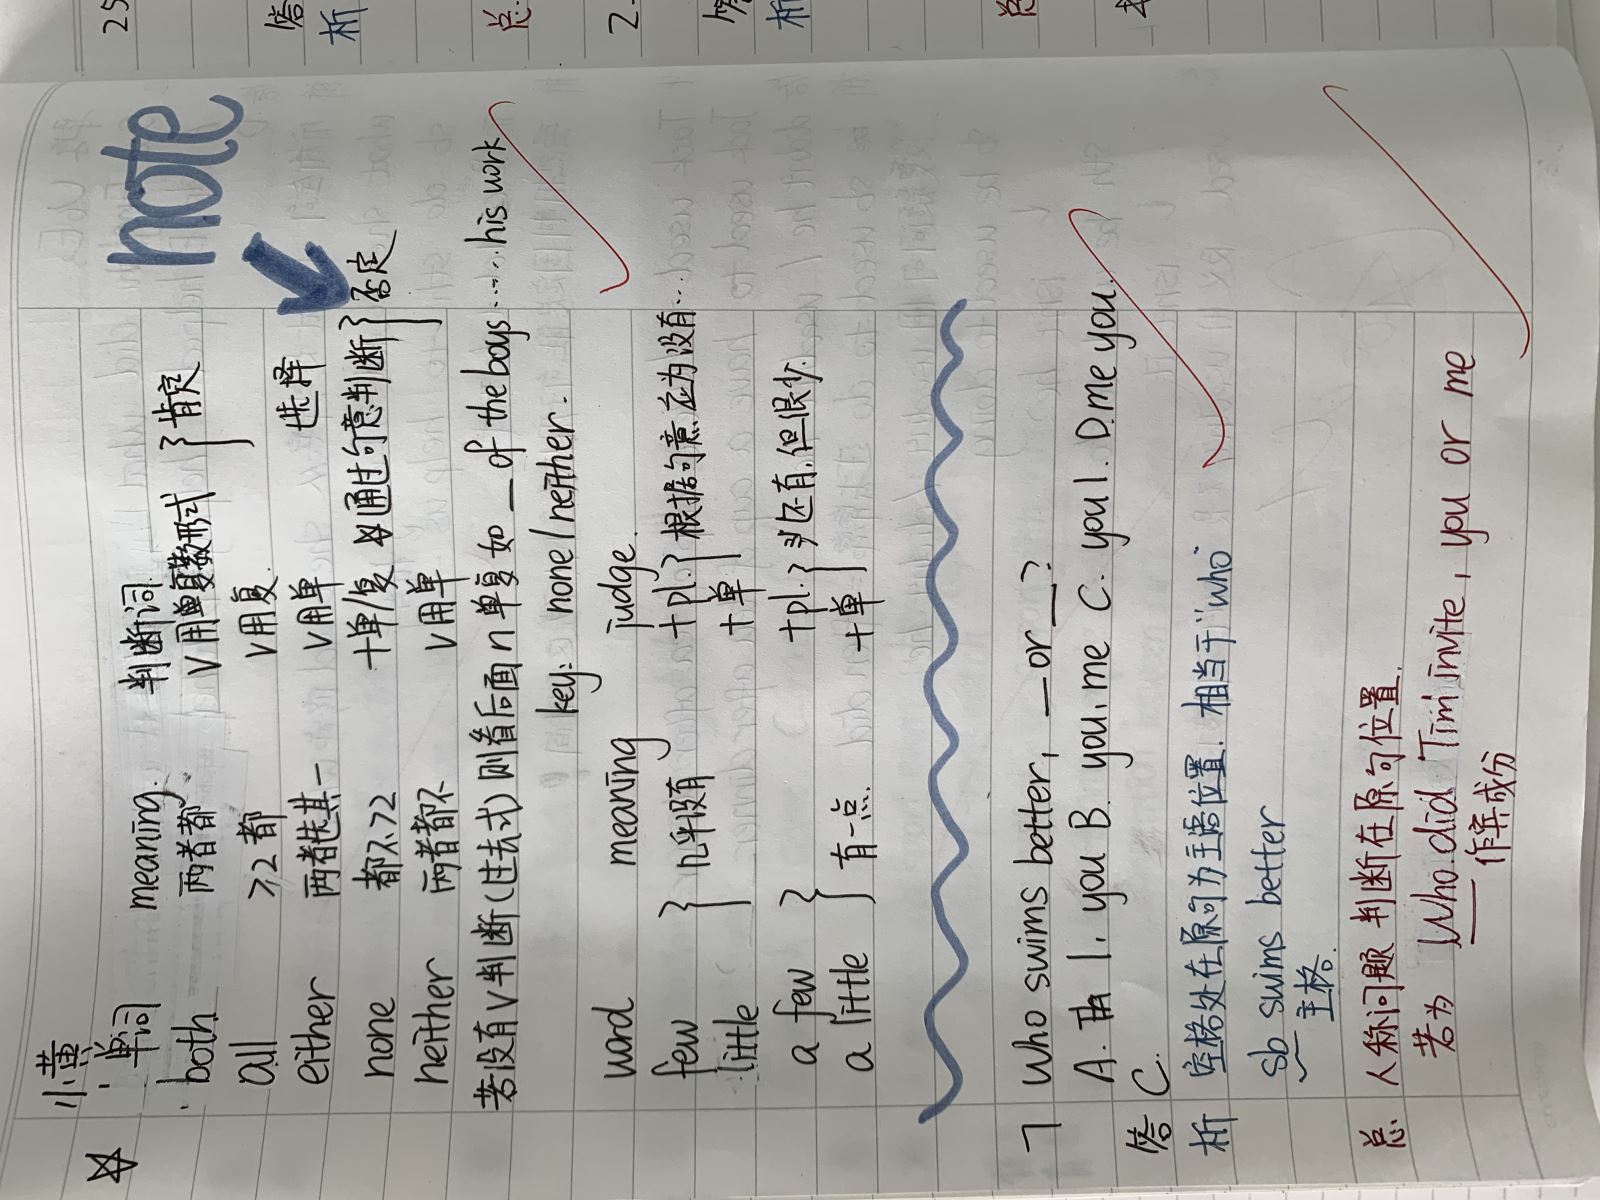 note
☆ 小黄
单词 meaning. 判断词
both 两者都 V用单复数形式 } 肯定
all ≥2都 V用复.
either 两者选其一 V用单 选择
none 都不 >2 +单/复 ☆通过句意判断 } 否定
neither 两者都不 V用单
若没有V判断(过去式)则看后面n单复 如 __ of the boys ..... his work
key: none/neither.
word meaning judge.
few } 几乎没有 +pl. } 根据句意应为没有...
little +单
a few } 有一点. +pl. } 还有,但很少.
a little +单
7 Who swims better, __ or __?
A. I, you B. you, me C. you I. D. me you.
答 C.
析 空格处在原句为主语位置. 相当于"who"
sb swims better
主格.
总 人称问题 判断在原句位置.
若为 Who did Tim invite, you or me
作宾成分